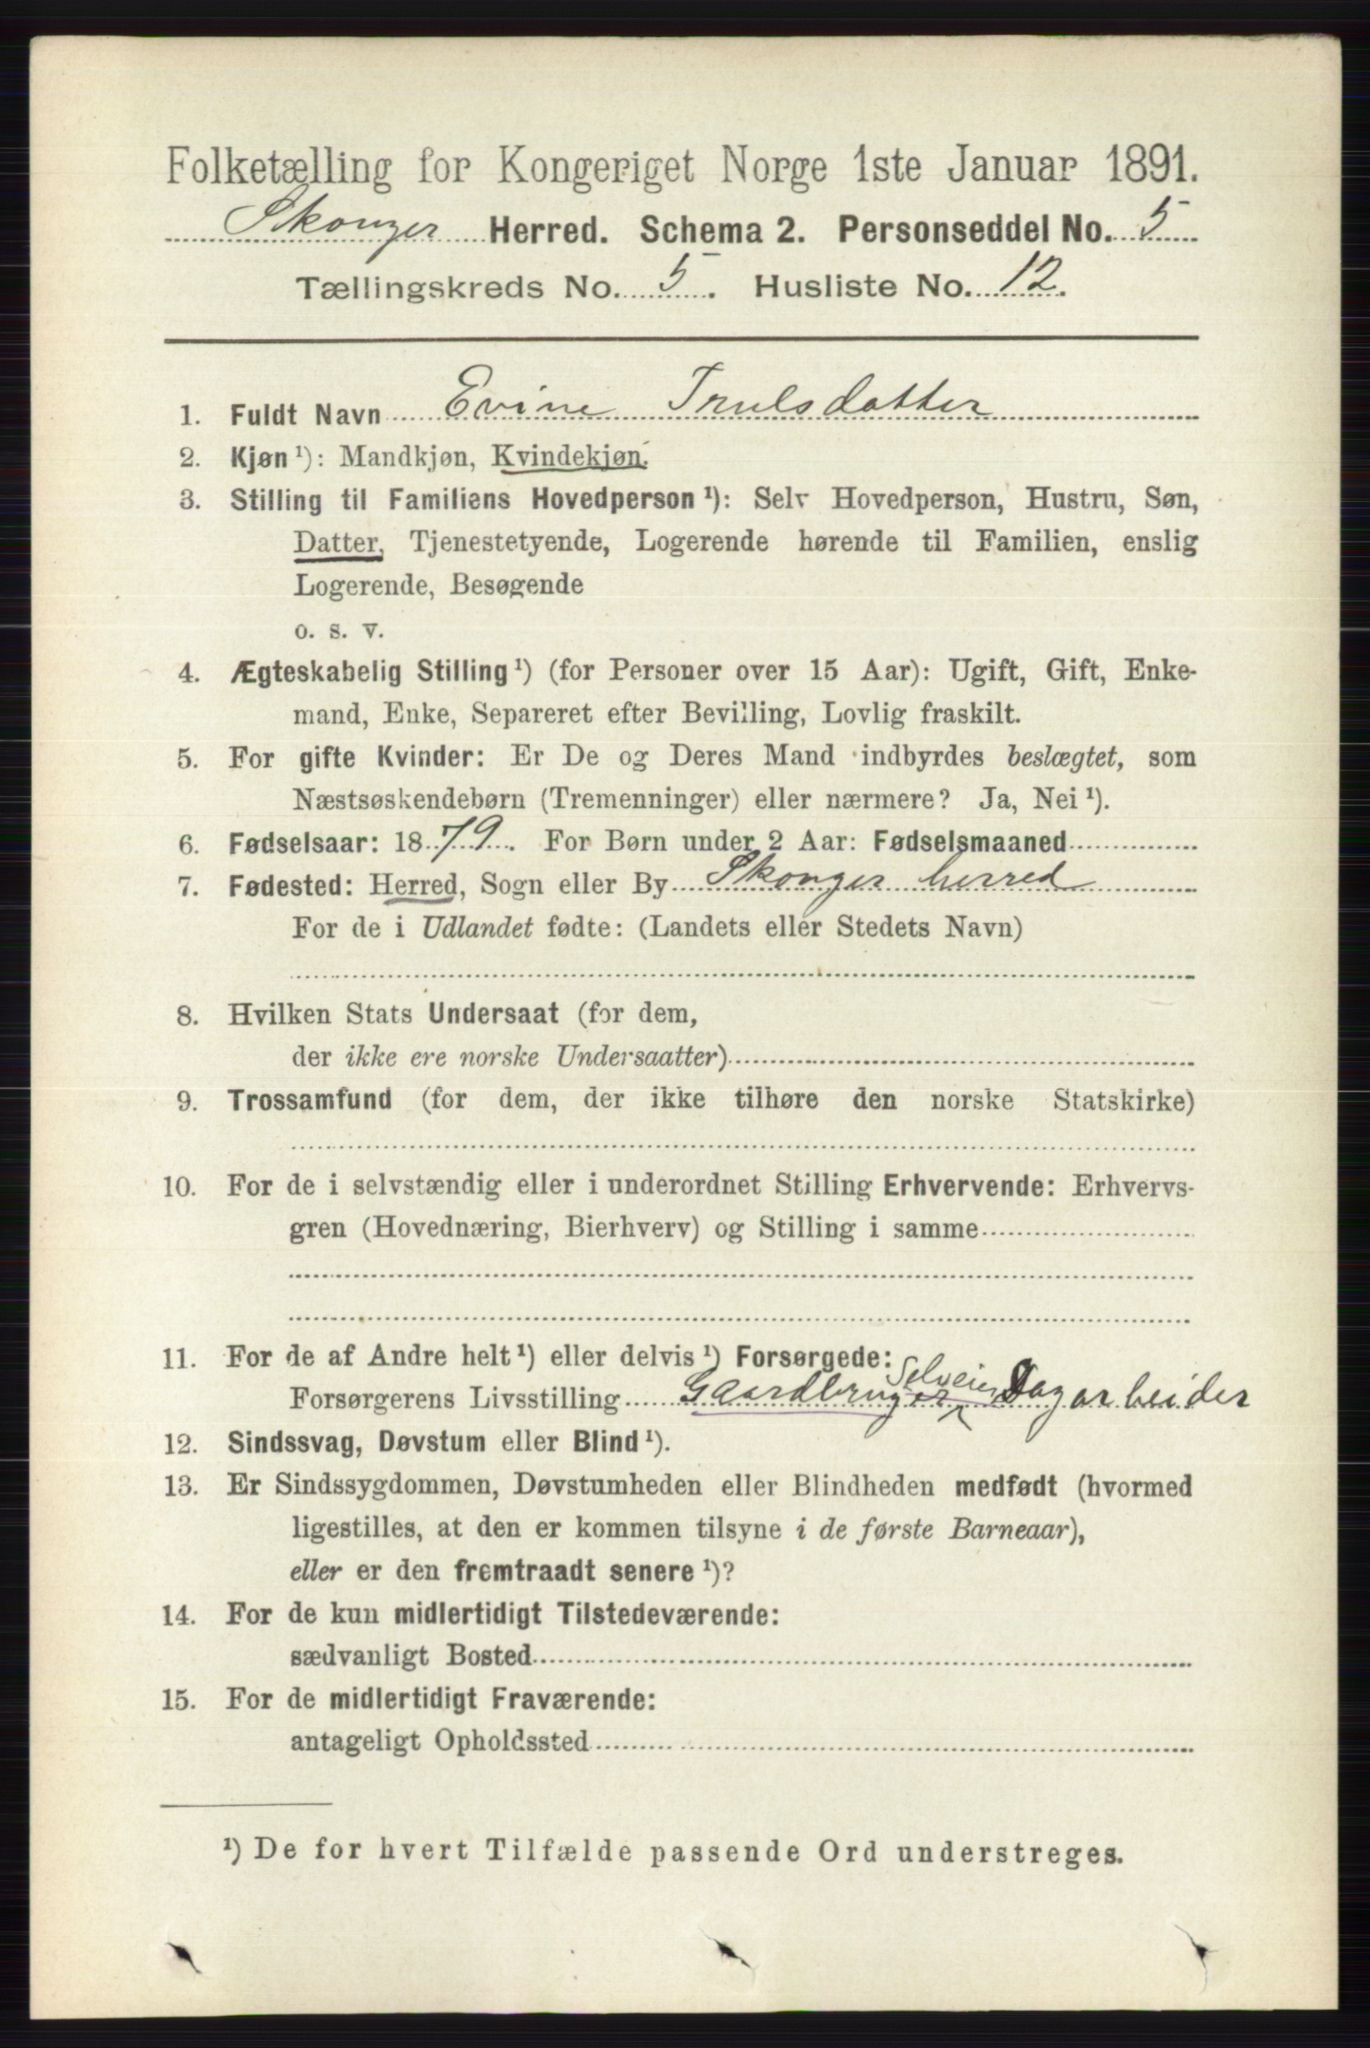 Folketælling for Kongeriget Norge 1ste Januar 1891.
Skonger Herred. Schema 2. Personseddel No. 5
Tællingskreds No. 5. Husliste No. 12.
1. Fuldt Navn Evine Trulsdatter
2. Kjøn ¹): Mandkjøn, Kvindekjøn.
3. Stilling til Familiens Hovedperson ¹): Selv Hovedperson, Hustru, Søn,
Datter, Tjenestetyende, Logerende hørende til Familien, enslig
Logerende, Besøgende
o. s. v.
4. Ægteskabelig Stilling ¹) (for Personer over 15 Aar): Ugift, Gift, Enke-
mand, Enke, Separeret efter Bevilling, Lovlig fraskilt.
5. For gifte Kvinder: Er De og Deres Mand indbyrdes beslægtet, som
Næstsøskendebørn (Tremenninger) eller nærmere? Ja, Nei ¹).
6. Fødselsaar: 1879. For Børn under 2 Aar: Fødselsmaaned
7. Fødested: Herred, Sogn eller By Skonger herred
For de i Udlandet fødte: (Landets eller Stedets Navn)
8. Hvilken Stats Undersaat (for dem,
der ikke ere norske Undersaatter)
9. Trossamfund (for dem, der ikke tilhøre den norske Statskirke)
10. For de i selvstændig eller i underordnet Stilling Erhvervende: Erhvervs-
gren (Hovednæring, Bierhverv) og Stilling i samme
11. For de af Andre helt ¹) eller delvis ¹) Forsørgede:
Forsørgerens Livsstilling Gaardbruger Selveier Dagarbeider
12. Sindssvag, Døvstum eller Blind ¹).
13. Er Sindssygdommen, Døvstumheden eller Blindheden medfødt (hvormed
ligestilles, at den er kommen tilsyne i de første Barneaar),
eller er den fremtraadt senere ¹)?
14. For de kun midlertidigt Tilstedeværende:
sædvanligt Bosted
15. For de midlertidigt Fraværende:
antageligt Opholdssted
¹) De for hvert Tilfælde passende Ord understreges.